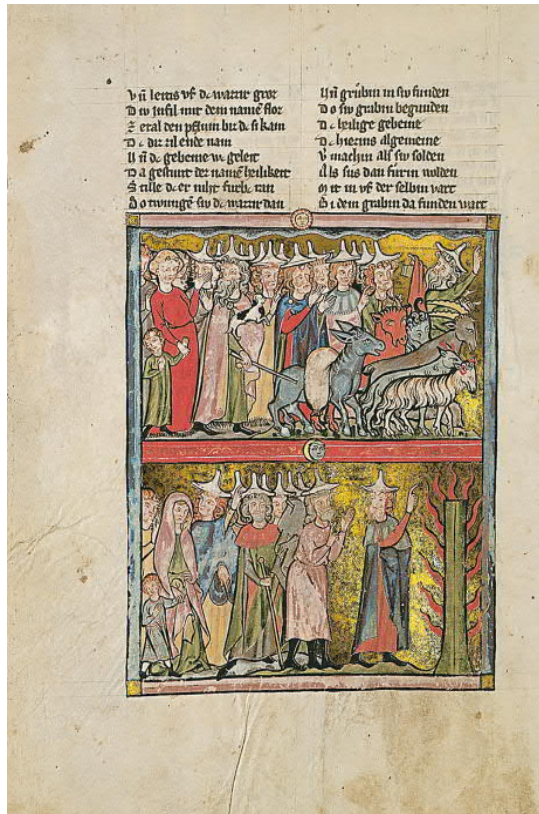 vn̄ leitis vf dc warar gror
Div insil mit dem namē flor
Zetal den pflum biz dc si kam
Dc dir zil ende nam
Un̄ dc gebeine w geleit
Da gestunt der namē heilikeit
Stille dc er niht furbc ran
So twungē siv dc warar dan
Un̄ grůbin in siv funden
Do siv grabin begunden
Dc heilige gebeine
Dc hierins algemeine
V̄ machin als siv solden
Als sus dan fůrin wolden
Mit in vf der selbin vart
Bi dem grabin da funden wart